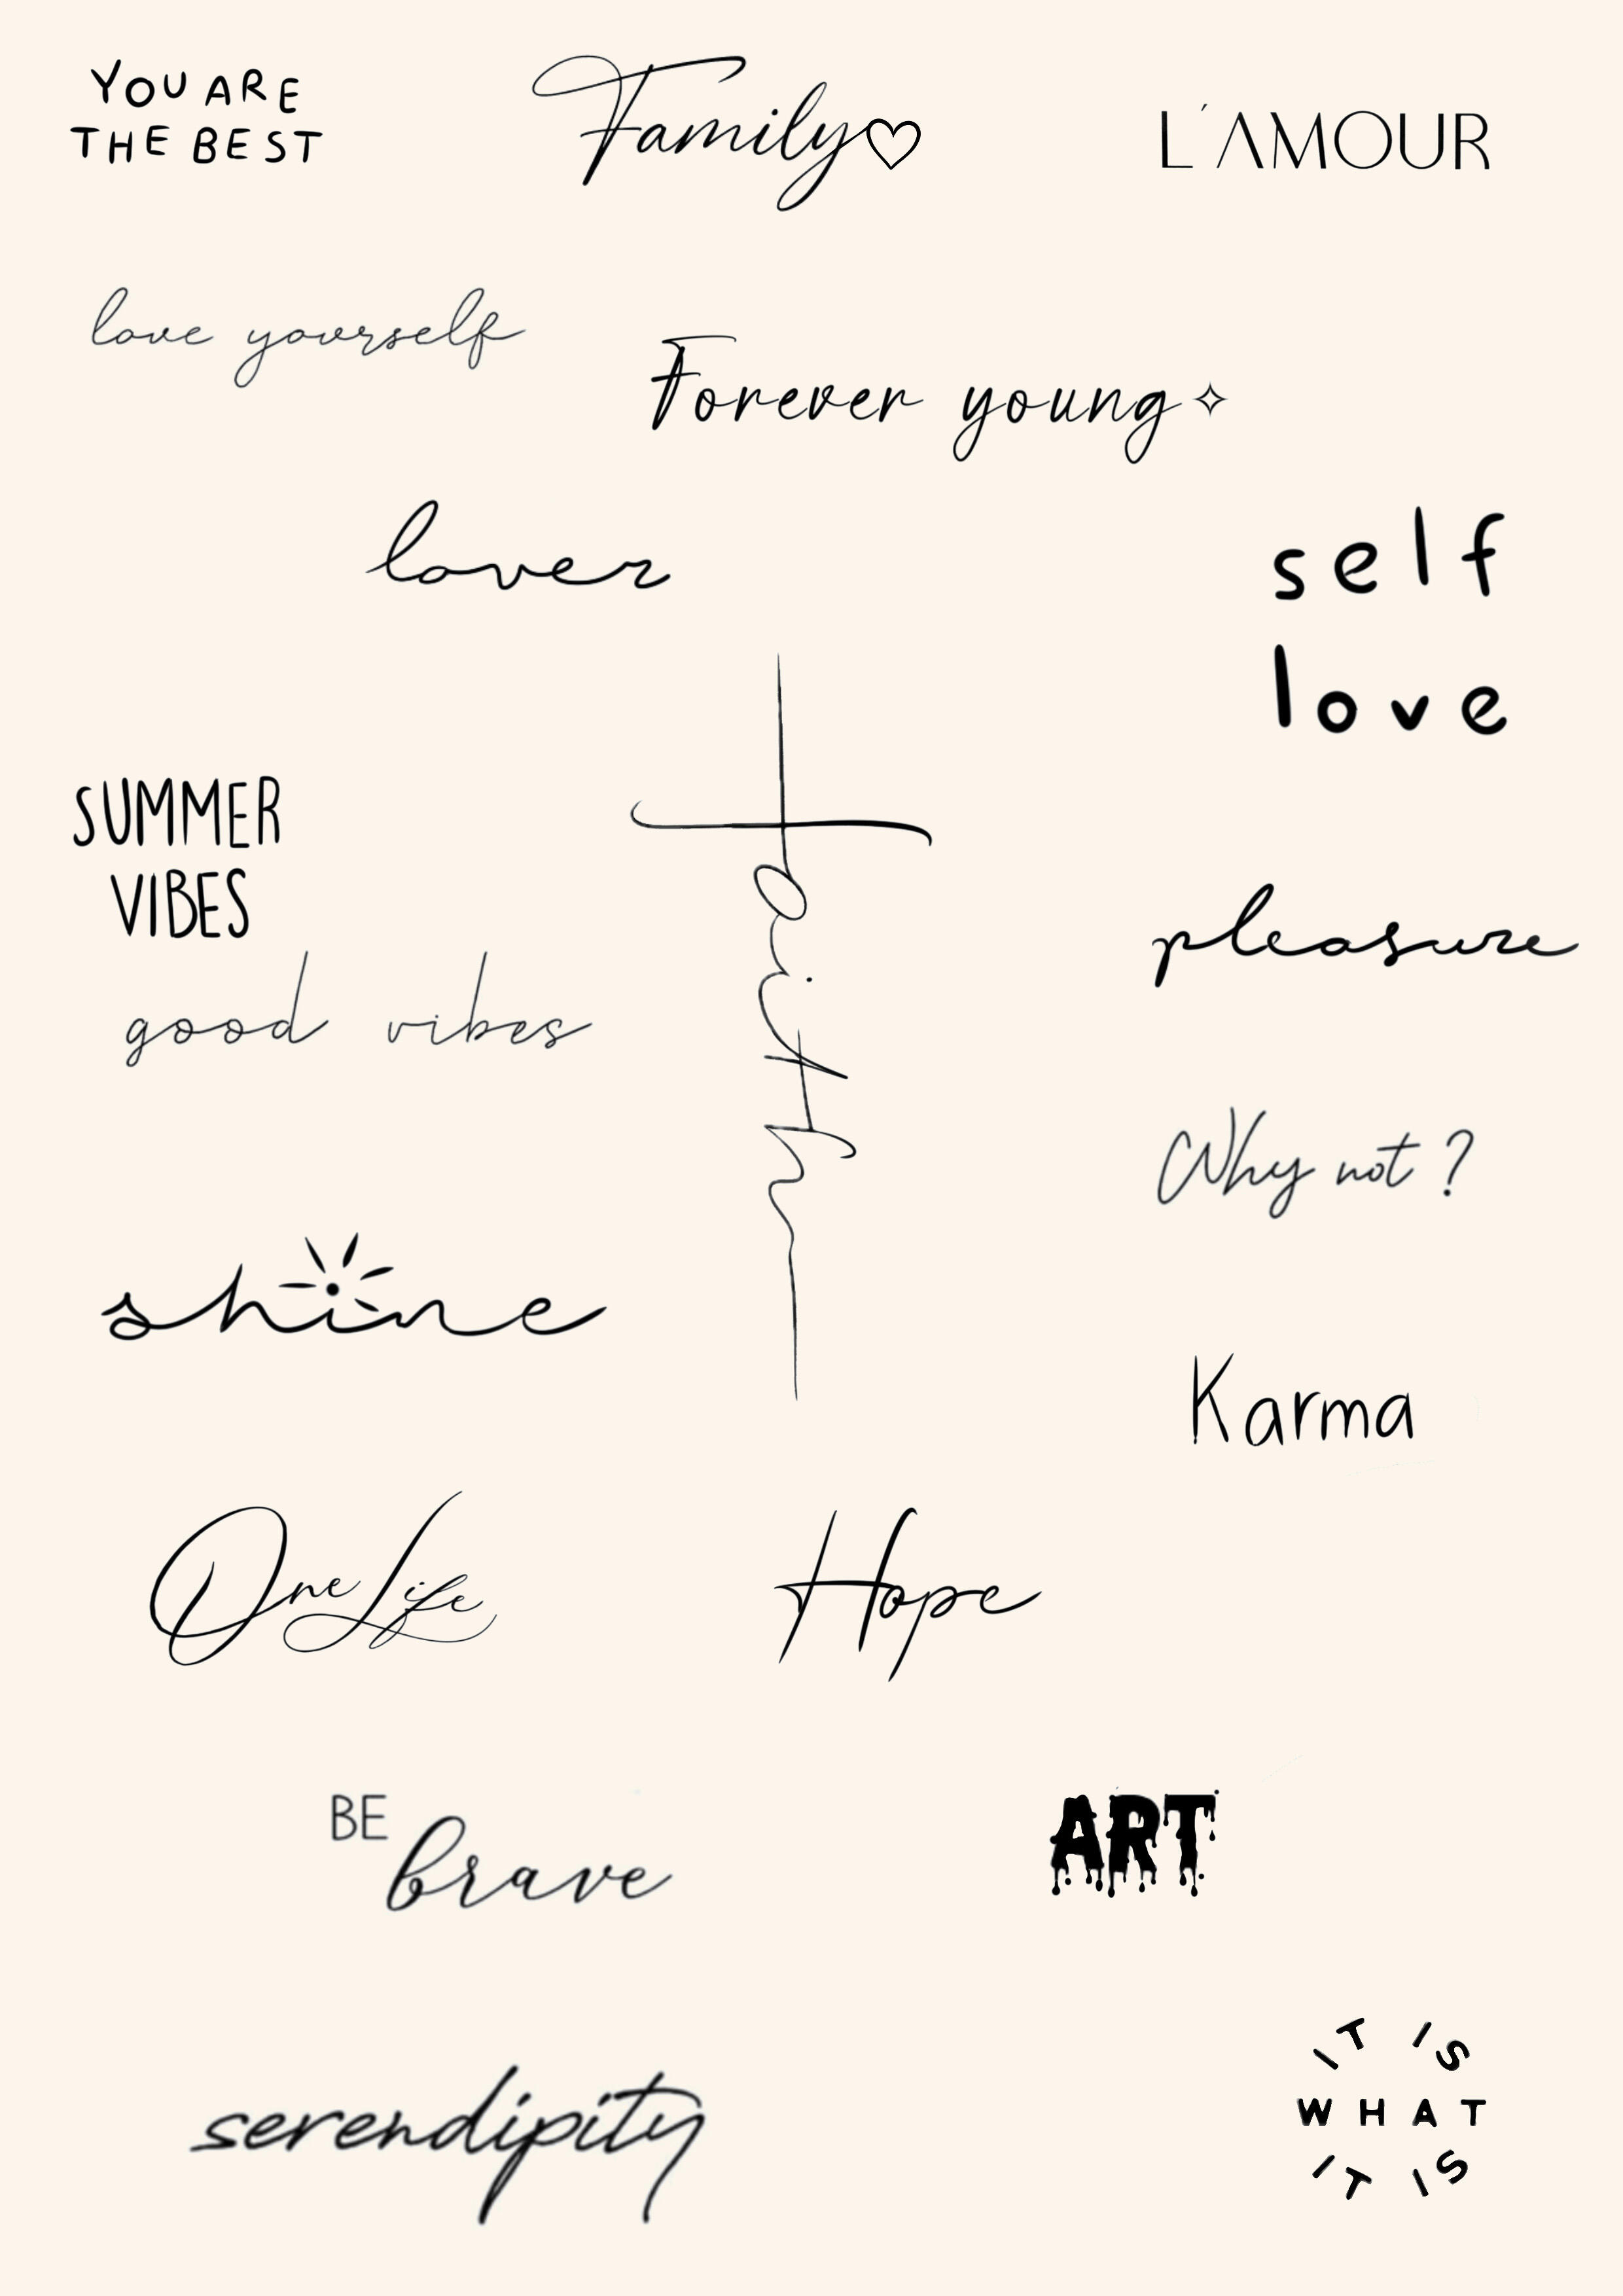 YOU ARE
THE BEST
Family
L'AMOUR
love yourself
Forever young
lover
self
love
SUMMER
VIBES
faith
pleasure
good vibes
Why not ?
shine
Karma
One Life
Hope
BE
brave
ART
serendipity
IT IS
WHAT
IT IS